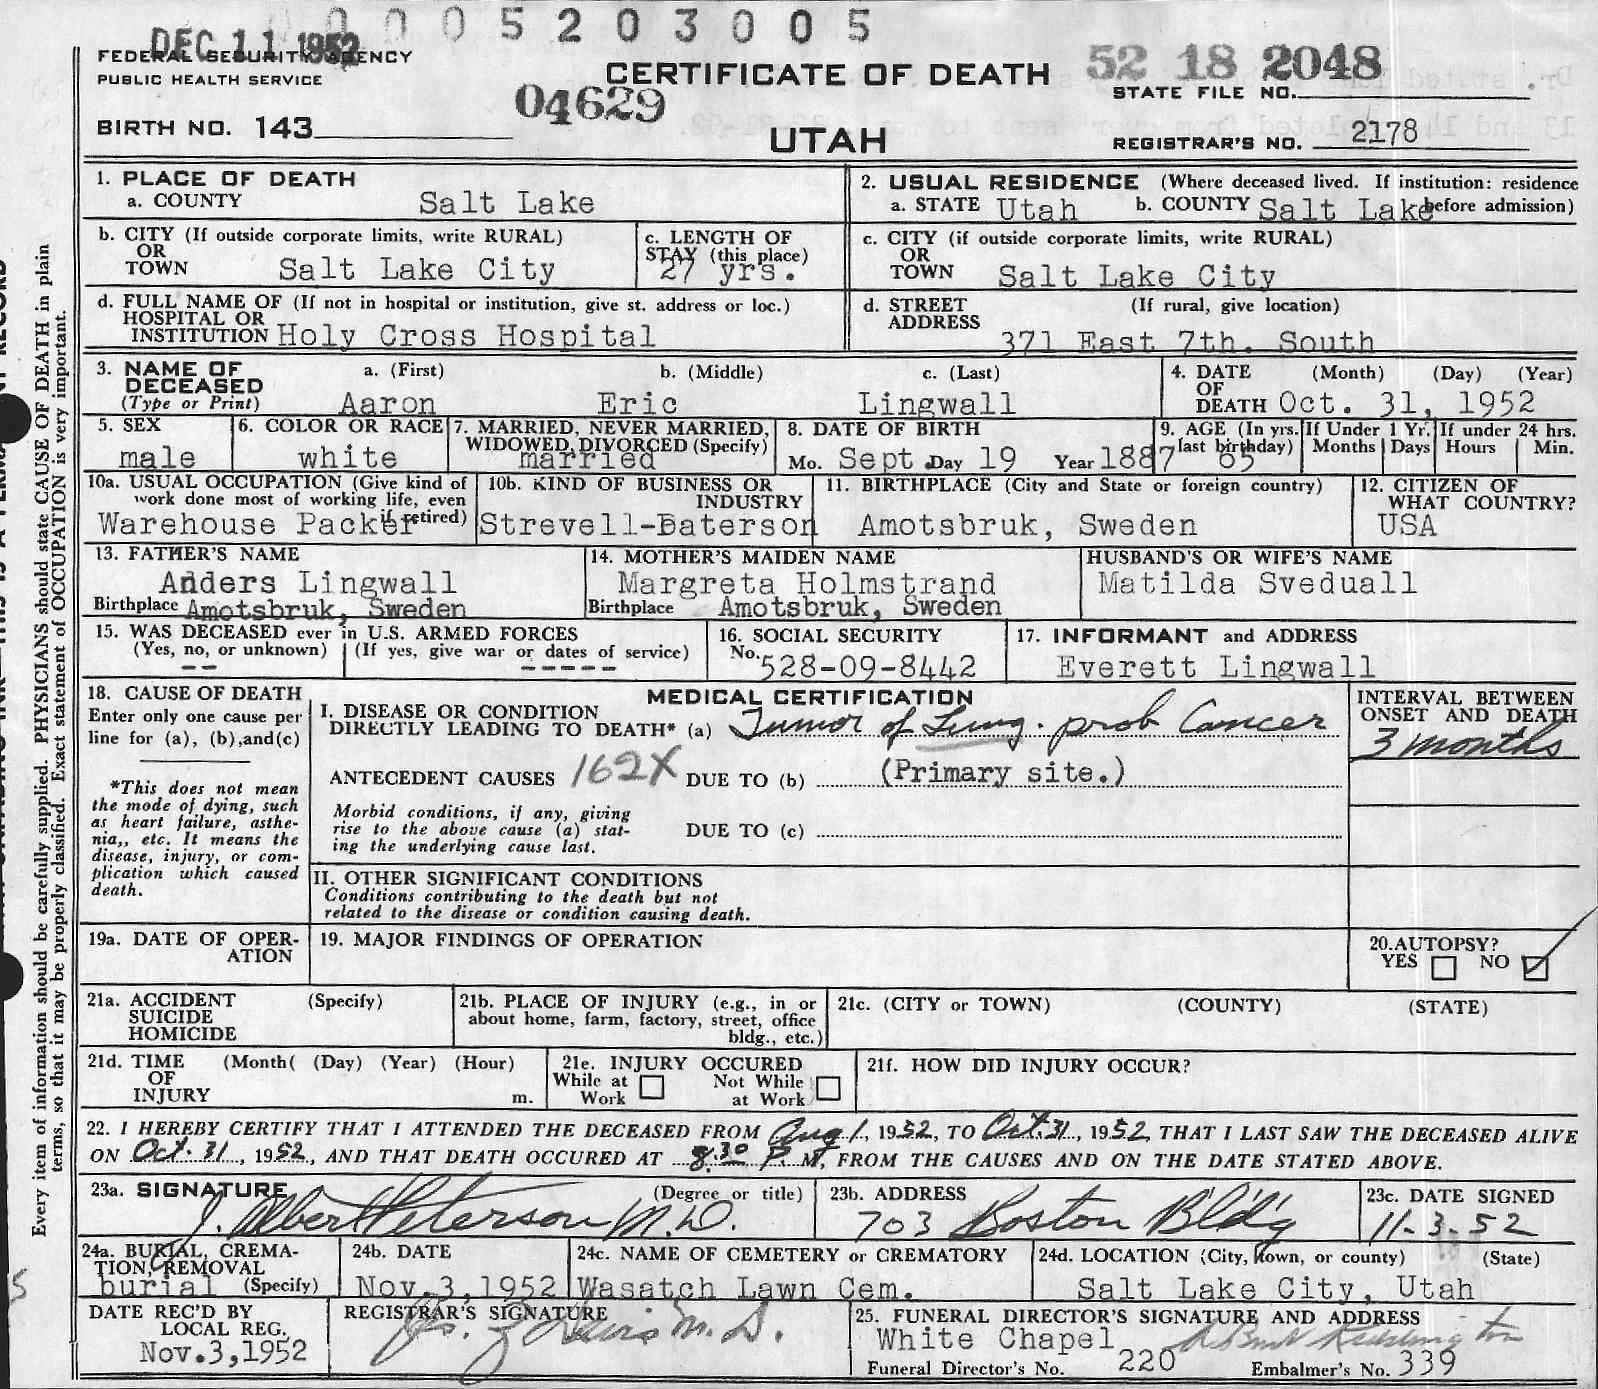 0 0 0 5 2 0 3 0 0 5
DEC 11 1952
FEDERAL SECURITY AGENCY
PUBLIC HEALTH SERVICE
CERTIFICATE OF DEATH
52 18 2048
STATE FILE NO.
04629
BIRTH NO. 143
UTAH
REGISTRAR'S NO. 2178
1. PLACE OF DEATH
a. COUNTY Salt Lake
2. USUAL RESIDENCE (Where deceased lived. If institution: residence
a. STATE Utah b. COUNTY Salt Lake before admission)
b. CITY (If outside corporate limits, write RURAL)
OR
TOWN Salt Lake City
c. LENGTH OF
STAY (this place)
27 yrs.
c. CITY (if outside corporate limits, write RURAL)
OR
TOWN Salt Lake City
d. FULL NAME OF (If not in hospital or institution, give st. address or loc.)
HOSPITAL OR
INSTITUTION Holy Cross Hospital
d. STREET (If rural, give location)
ADDRESS
371 East 7th. South
3. NAME OF a. (First) b. (Middle) c. (Last)
DECEASED
(Type or Print) Aaron Eric Lingwall
4. DATE (Month) (Day) (Year)
OF
DEATH Oct. 31, 1952
5. SEX
male
6. COLOR OR RACE
white
7. MARRIED, NEVER MARRIED,
WIDOWED, DIVORCED (Specify)
married
8. DATE OF BIRTH
Mo. Sept. Day 19 Year 1887
9. AGE (In yrs.
last birthday) 65
If Under 1 Yr.
Months Days
If under 24 hrs.
Hours Min.
10a. USUAL OCCUPATION (Give kind of
work done most of working life, even
if retired)
Warehouse Packer
10b. KIND OF BUSINESS OR
INDUSTRY
Strevell-Paterson
11. BIRTHPLACE (City and State or foreign country)
Amotsbruk, Sweden
12. CITIZEN OF
WHAT COUNTRY?
USA
13. FATHER'S NAME
Anders Lingwall
Birthplace Amotsbruk, Sweden
14. MOTHER'S MAIDEN NAME
Margreta Holmstrand
Birthplace Amotsbruk, Sweden
HUSBAND'S OR WIFE'S NAME
Matilda Sveduall
15. WAS DECEASED ever in U.S. ARMED FORCES
(Yes, no, or unknown) (If yes, give war or dates of service)
-- -----
16. SOCIAL SECURITY
No. 528-09-8442
17. INFORMANT and ADDRESS
Everett Lingwall
18. CAUSE OF DEATH
Enter only one cause per
line for (a), (b),and(c)
*This does not mean
the mode of dying, such
as heart failure, asthe-
nia,, etc. It means the
disease, injury, or com-
plication which caused
death.
MEDICAL CERTIFICATION
I. DISEASE OR CONDITION
DIRECTLY LEADING TO DEATH* (a) Tumor of Lung. prob Cancer
ANTECEDENT CAUSES 162X DUE TO (b) (Primary site.)
Morbid conditions, if any, giving
rise to the above cause (a) stat-
ing the underlying cause last.
DUE TO (c)
INTERVAL BETWEEN
ONSET AND DEATH
3 months
II. OTHER SIGNIFICANT CONDITIONS
Conditions contributing to the death but not
related to the disease or condition causing death.
19a. DATE OF OPER-
ATION
19. MAJOR FINDINGS OF OPERATION
20.AUTOPSY?
YES NO
21a. ACCIDENT (Specify)
SUICIDE
HOMICIDE
21b. PLACE OF INJURY (e.g., in or
about home, farm, factory, street, office
bldg., etc.)
21c. (CITY or TOWN) (COUNTY) (STATE)
21d. TIME (Month( (Day) (Year) (Hour)
OF
INJURY m.
21e. INJURY OCCURED
While at Not While
Work at Work
21f. HOW DID INJURY OCCUR?
22. I HEREBY CERTIFY THAT I ATTENDED THE DECEASED FROM Aug 1, 1952, TO Oct. 31, 1952, THAT I LAST SAW THE DECEASED ALIVE
ON Oct. 31, 1952, AND THAT DEATH OCCURED AT 8:30 P. M, FROM THE CAUSES AND ON THE DATE STATED ABOVE.
23a. SIGNATURE (Degree or title)
J. Albert Peterson M.D.
23b. ADDRESS
703 Boston Bldg
23c. DATE SIGNED
11-3-52
24a. BURIAL, CREMA-
TION, REMOVAL
burial (Specify)
24b. DATE
Nov.3,1952
24c. NAME OF CEMETERY or CREMATORY
Wasatch Lawn Cem.
24d. LOCATION (City, town, or county) (State)
Salt Lake City, Utah
DATE REC'D BY
LOCAL REG.
Nov.3,1952
REGISTRAR'S SIGNATURE
M.D.
25. FUNERAL DIRECTOR'S SIGNATURE AND ADDRESS
White Chapel
Funeral Director's No. 220 Embalmer's No. 339
Every item of information should be carefully supplied. PHYSICIANS should state CAUSE OF DEATH in plain
terms, so that it may be properly classified. Exact statement of OCCUPATION is very important.